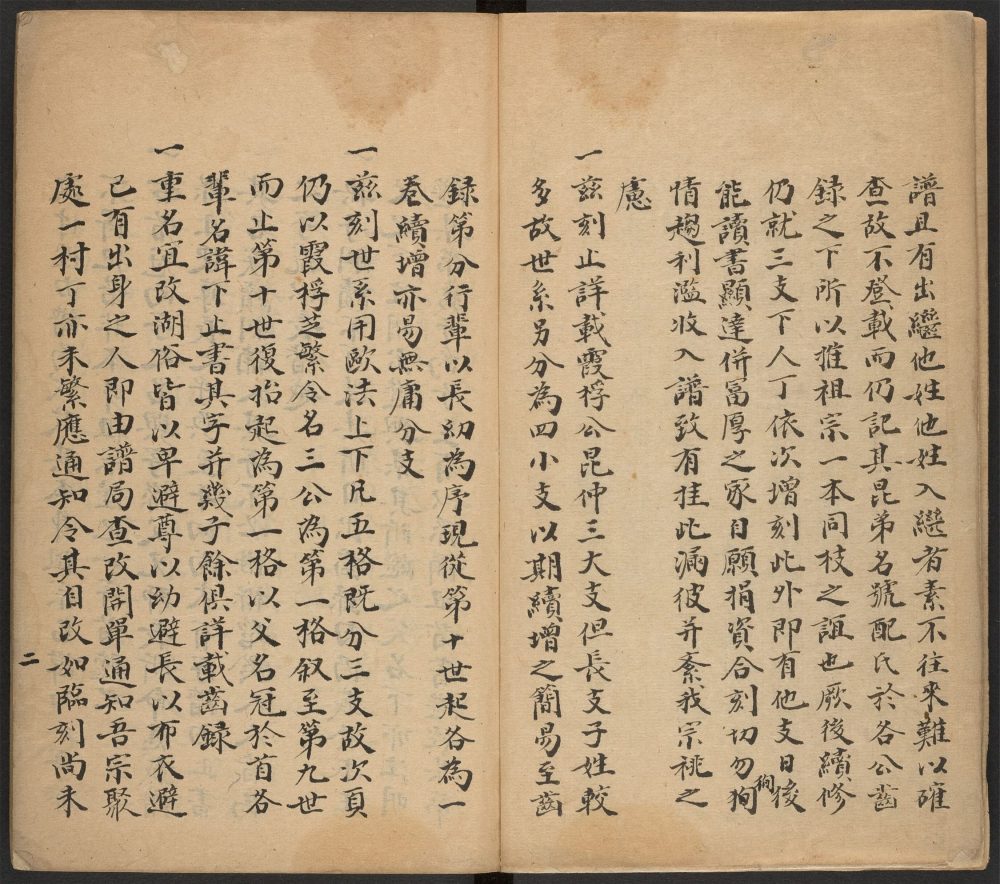 譜且有出繼他姓他姓入繼者素不往來難以確
查故不登載而仍記其昆弟名號配氏於各公齒
錄之下所以推祖宗一本同枝之誼也厥後續修
仍就三支下人丁依次增刻此外即有他支日後
能讀書顯達併富厚之家自願捐資合刻切勿狥
徇
情趨利濫收入譜致有挂此漏彼并紊我宗祧之
慮
一茲刻止詳載霞桴公昆仲三大支但長支子姓較
多故世系另分為四小支以期續增之簡易至齒
錄第分行輩以長幼為序現從第十世起各為一
卷續增亦易無庸分支
一茲刻世系用歐法上下凡五格既分三支故次頁
仍以霞桴芝繁令名三公為第一格叙至第九世
而止第十世復抬起為第一格以父名冠於首各
輩名諱下止書其字并幾子餘俱詳載齒錄
一重名宜改湖俗皆以卑避尊以幼避長以布衣避
已有出身之人即由譜局查改開單通知吾宗聚
處一村丁亦未繁應通知令其自改如臨刻尚未
二